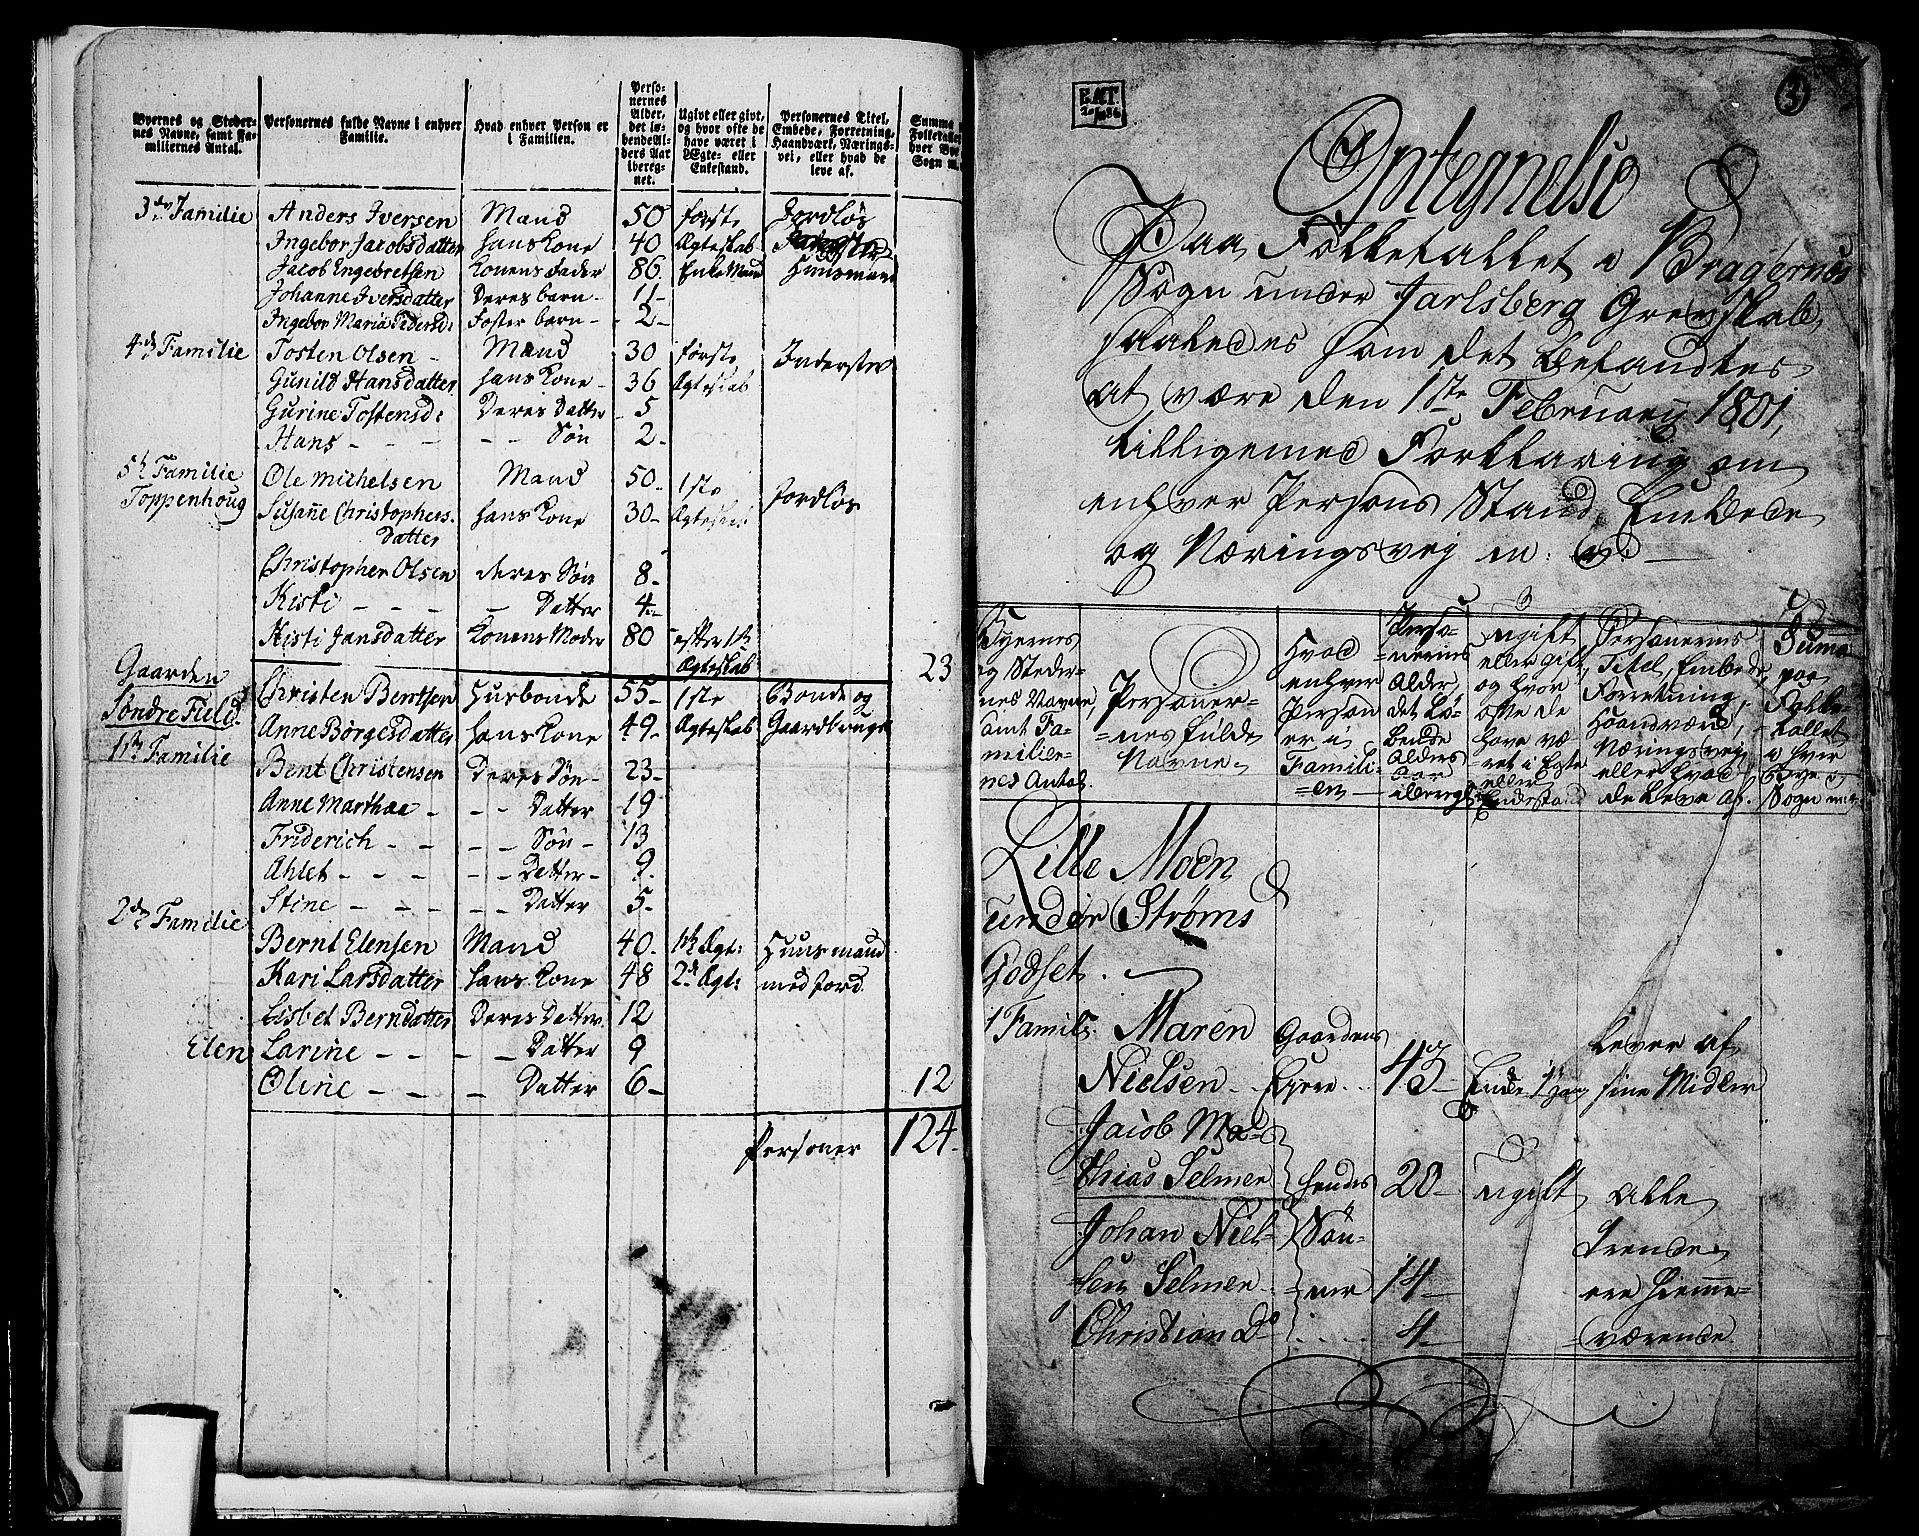 Byernes og Stedernes Navne, samt Familiernes Antal.
Personernes fulde Navne i enhver Familie.
Hvad enhver Person er i Familien.
Personernes Alder, det løbende Alders Aar iberegnet.
Ugivt eller givt, og hvor ofte de have været i Ægte- eller Enkestand.
Personernes Titel, Embede, Forretning, Haandværk, Næringsvei, eller hvad de leve af.
Summa Folketallet hver Bye Sogn
3die Familie Anders Iversen Mand 50 første Jordløs
Ingebor Jacobsdatter hans Kone 40 Ægteskab
Jacob Engebretsen Konens Fader 86 Enke Mand Huusmand
Johanne Iversdatter Deres barn - 11 -
Ingebor Maria Pedersd: Foster barn - 2 -
4de Familie Tosten Olsen - Mand 30 første Inderster
Gunild Hansdatter hans Kone - 36 Ægteskab
Gurine Tostensd: Deres Datter - 5
Hans - - - - - Søn 2 -
5te Familie Ole Michelsen Mand 50 - 1ste Jordløs
Toppenhoug Susanne Christophers- hans Kone 30 - Ægteskab
datter
Christopher Olsen deres Søn 8 -
Kisti - - - - Datter 4 -
Kisti Jansdatter Konens Moder 80 efter 1ste
Ægteskab 23
Gaarden Christen Bentsen Husbonde 55 - 1ste Bonde og
Søndre Field Anne Børgesdatter hans Kone 49 - Ægteskab Gaardbruger
1ste Familie Bent Christensen Deres Søn - 23 -
Anne Marthaa - - - Datter 19
Friderich - - - - Søn - 13
Ahlet - - - - - Datter - 9 -
Stine - - - - - Datter 5 -
2den Familie
Bernt Elensen Mand 40 - 1ste Ægt: Huusmand
Kari Larsdatter hans Kone 48 2d Ægt: med Jord
Lisbet Berndatter Deres Datter 12
Elen Larine - - - - Datter 9
Oline - - - Datter 6 - 12
Personer 124 -
3
Optegnelse
Paa Folketallet i Bragernes
Sogn under Jarlsberg Grevskab,
saaledes som det befandtes
at være den 1ste February 1801,
tilligemed Forklaring om
enhver Persons Stand, Embede
og Næringsvej m: v:
Byernes og Stedernes Navne, samt Familiernes Antal.
Personernes fulde Navne.
Hvad enhver Person er i Familien
Personernes Alder, det løbende Alders Aar iberegnet
Ugift eller gift, og hvor ofte de have været i Egte eller Enkestand
Personernes Titel, Embede, Forretning, Haandværk, Næringsvej eller hvad de leve af.
Suma paa Folketallet i hver Bye og Sogn
Lille Moen
under Strøms
Godset.
1 Famil: Maren Gaardens Lever af
Nielsen Ejere 43 - Enke sine Midler
Jacob Ma-
thias Selmer hendes 20 - ugift alle
Johan Niel- Søn- trende
sen Selmer ner 14 - ere hiemme-
Christian Do 4 - værende